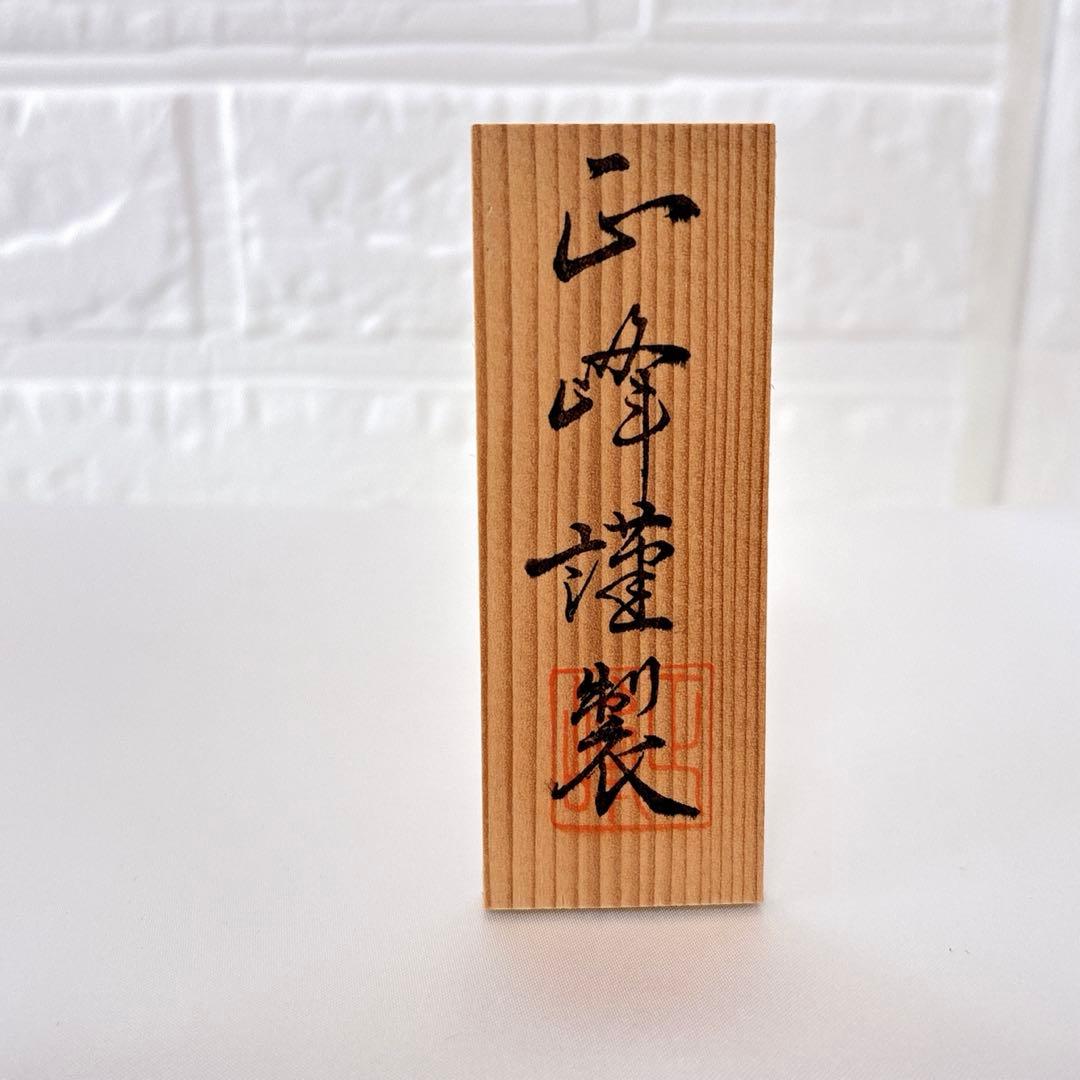 正峰謹製